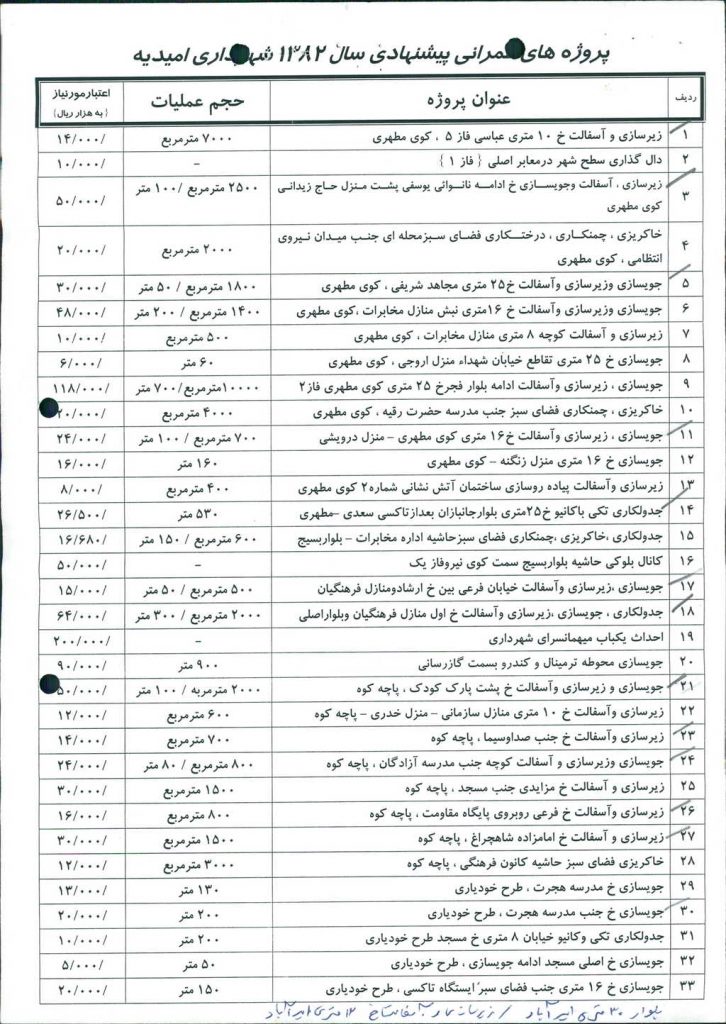 پروژه های عمرانی پیشنهادی سال ۱۳۸۲ شهرداری امیدیه
ردیف عنوان پروژه حجم عملیات اعتبار مورد نیاز
( به هزار ریال )
۱ زیرسازی و آسفالت خ ۱۰ متری عباسی فاز ۵ ، کوی مطهری ۷۰۰۰ مترمربع ۱۴/۰۰۰/
۲ دال گذاری سطح شهر درمعابر اصلی { فاز ۱ } – ۱۰/۰۰۰/
۳ زیرسازی ، آسفالت وجویسازی خ ادامه نانوائی یوسفی پشت منزل حاج زیدانی ۲۵۰۰ مترمربع /۱۰۰ متر ۵۰/۰۰۰/
کوی مطهری
۴ خاکریزی ، چمنکاری ، درختکاری فضای سبزمحله ای جنب میدان نیروی ۲۰۰۰ مترمربع ۲۰/۰۰۰/
انتظامی ، کوی مطهری
۵ جویسازی وزیرسازی وآسفالت خ۲۵ متری مجاهد شریفی ، کوی مطهری ۱۸۰۰ مترمربع / ۵۰ متر ۳۰/۰۰۰/
۶ جویسازی وزیرسازی وآسفالت خ ۱۶متری نبش منازل مخابرات ،کوی مطهری ۱۴۰۰ مترمربع / ۲۰۰ متر ۴۸/۰۰۰/
۷ زیرسازی و آسفالت کوچه ۸ متری منازل مخابرات ، کوی مطهری ۵۰۰ مترمربع ۱۰/۰۰۰/
۸ جویسازی خ ۲۵ متری تقاطع خیابان شهداء منزل اروجی ، کوی مطهری ۶۰ متر ۶/۰۰۰/
۹ جویسازی ، زیرسازی وآسفالت ادامه بلوار فجرخ ۲۵ متری کوی مطهری فاز۲ ۱۰۰۰۰مترمربع/۷۰۰ متر ۱۱۸/۰۰۰/
۱۰ خاکریزی ، چمنکاری فضای سبز جنب مدرسه حضرت رقیه ، کوی مطهری ۴۰۰۰ مترمربع ۲۰/۰۰۰/
۱۱ جویسازی ، زیرسازی وآسفالت خ۱۶ متری کوی مطهری – منزل درویشی ۷۰۰ مترمربع / ۱۰۰ متر ۲۴/۰۰۰/
۱۲ جویسازی خ ۱۶ متری منزل زنگنه – کوی مطهری ۱۶۰ متر ۱۶/۰۰۰/
۱۳ زیرسازی وآسفالت پیاده روسازی ساختمان آتش نشانی شماره۲ کوی مطهری ۴۰۰ مترمربع ۸/۰۰۰/
۱۴ جدولکاری تکی باکانیو خ۲۵متری بلوارجانبازان بعدازتاکسی سعدی –مطهری ۵۳۰ متر ۲۶/۵۰۰/
۱۵ جدولکاری ،خاکریزی ،چمنکاری فضای سبزحاشیه اداره مخابرات – بلواربسیج ۶۰۰ مترمربع / ۱۵۰ متر ۱۶/۶۸۰/
۱۶ کانال بلوکی حاشیه بلواربسیج سمت کوی نیروفاز یک – ۵۰/۰۰۰/
۱۷ جویسازی ،زیرسازی وآسفالت خیابان فرعی بین خ ارشادومنازل فرهنگیان ۵۰۰ مترمربع / ۵۰ متر ۱۵/۰۰۰/
۱۸ جدولکاری ، جویسازی ،زیرسازی وآسفالت خ اول منازل فرهنگیان وبلواراصلی ۲۰۰۰ مترمربع / ۳۰۰ متر ۶۴/۰۰۰/
۱۹ احداث یکباب میهمانسرای شهرداری – ۲۰۰/۰۰۰/
۲۰ جویسازی محوطه ترمینال و کندرو بسمت گازرسانی ۹۰۰ متر ۹۰/۰۰۰/
۲۱ جویسازی و زیرسازی وآسفالت خ پشت پارک کودک ، پاچه کوه ۲۰۰۰ متربه / ۱۰۰ متر ۵۰/۰۰۰/
۲۲ زیرسازی وآسفالت خ ۱۰ متری منازل سازمانی – منزل خدری – پاچه کوه ۶۰۰ مترمربع ۱۲/۰۰۰/
۲۳ زیرسازی وآسفالت خ جنب صداوسیما ، پاچه کوه ۷۰۰ مترمربع ۱۴/۰۰۰/
۲۴ جویسازی وزیرسازی و آسفالت کوچه جنب مدرسه آزادگان ، پاچه کوه ۸۰۰ مترمربع / ۸۰ متر ۲۴/۰۰۰/
۲۵ زیرسازی وآسفالت خ مزایدی جنب مسجد ، پاچه کوه ۱۵۰۰ مترمربع ۳۰/۰۰۰/
۲۶ زیرسازی وآسفالت خ فرعی روبروی پایگاه مقاومت ، پاچه کوه ۸۰۰ مترمربع ۱۶/۰۰۰/
۲۷ زیرسازی و آسفالت خ امامزاده شاهچراغ ، پاچه کوه ۱۵۰۰ مترمربع ۳۰/۰۰۰/
۲۸ خاکریزی فضای سبز حاشیه کانون فرهنگی ، پاچه کوه ۳۰۰۰ مترمربع ۱۲/۰۰۰/
۲۹ جویسازی خ مدرسه هجرت ، طرح خودیاری ۱۳۰ متر ۱۳/۰۰۰/
۳۰ جویسازی خ جنب مدرسه هجرت ، طرح خودیاری ۲۰۰ متر ۲۰/۰۰۰/
۳۱ جدولکاری تکی وکانیو خیابان ۸ متری خ مسجد طرح خودیاری ۲۰۰ متر ۱۰/۰۰۰/
۳۲ جویسازی خ اصلی مسجد ادامه جویسازی ، طرح خودیاری ۵۰ متر ۵/۰۰۰/
۳۳ جویسازی خ ۱۶ متری جنب فضای سبز ایستگاه تاکسی ، طرح خودیاری ۱۵۰ متر ۲۰/۰۰۰/
بلوار ۳۰ متری امیرآباد / ۱۲ متری امیرآباد